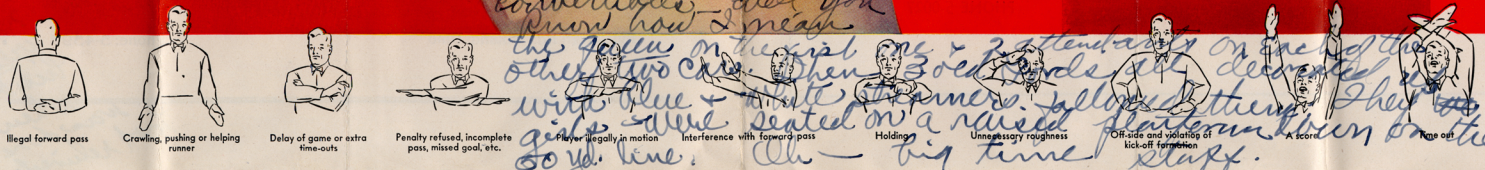 convertibles - did you
know how I mean
the queen on the first one & 2 attendants on each of the
other two cars. Then 3 old fords all decorated up
with blue & white streamers followed them. Their
girls were seated on a raised platform down on the
50 yd. line. Oh - big time stuff.
Illegal forward pass
Crawling, pushing or helping
runner
Delay of game or extra
time-outs
Penalty refused, incomplete
pass, missed goal, etc.
Player illegally in motion
Interference with forward pass
Holding
Unnecessary roughness
Off-side and violation of
kick-off formation
A score
Time out